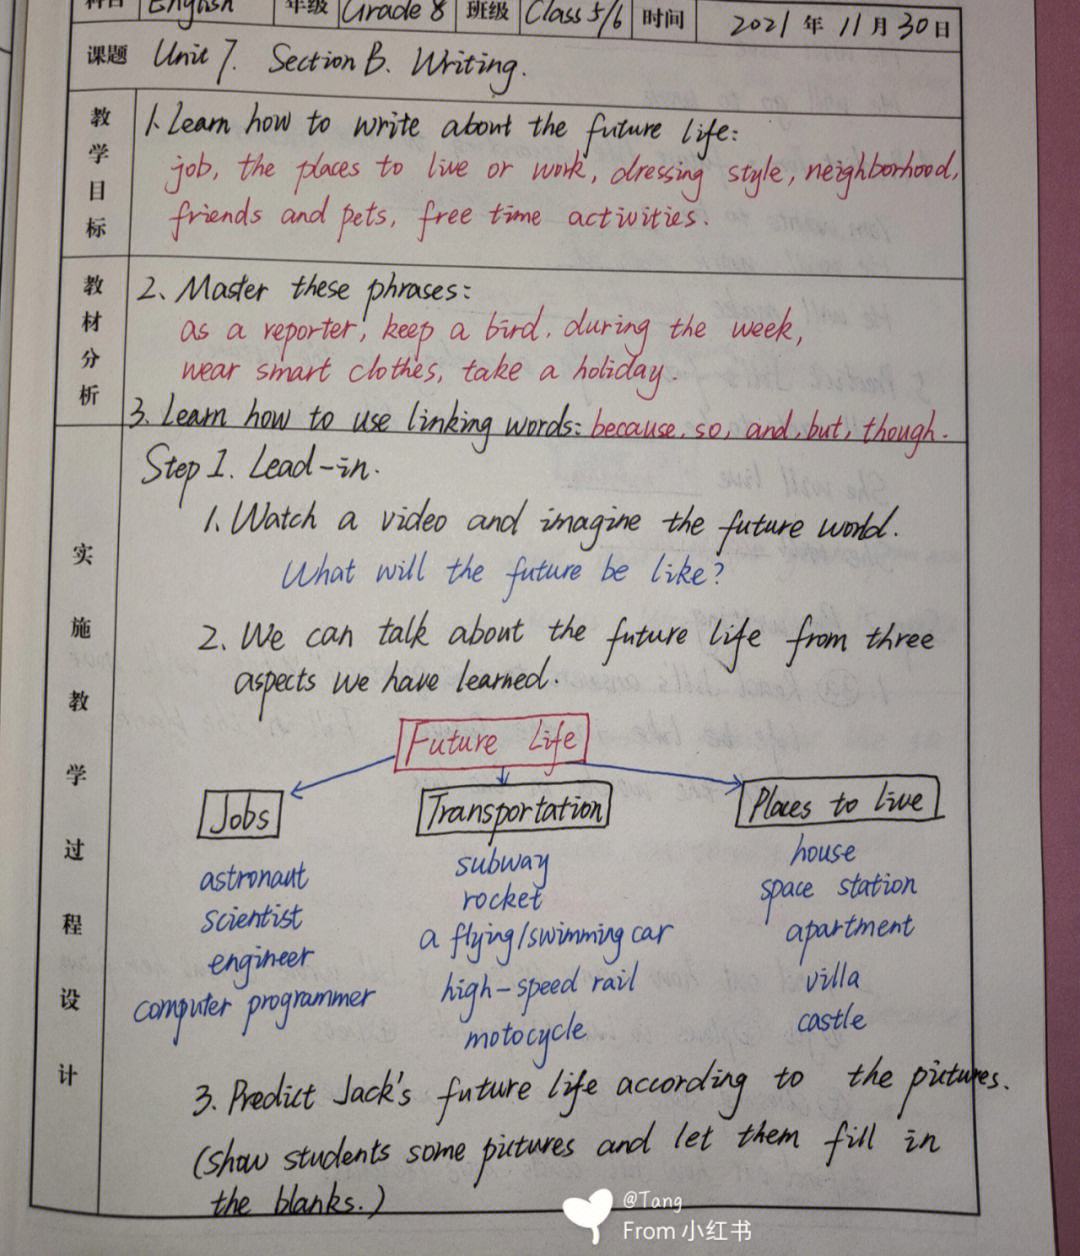 科目 English 年级 Grade 8 班级 Class 5/6 时间 2021 年 11 月 30 日
课题 Unit 7. Section B. Writing.
教学目标
1. Learn how to write about the future life:
job, the places to live or work, dressing style, neighborhood,
friends and pets, free time activities.
教材分析
2、Master these phrases:
as a reporter, keep a bird. during the week,
wear smart clothes, take a holiday.
3. Learn how to use linking words: because, so, and, but, though.
实施教学过程设计
Step 1. Lead-in.
1. Watch a video and imagine the future world.
What will the future be like?
2. We can talk about the future life from three
aspects we have learned.
Future Life
Jobs Transportation Places to live
astronaut subway house
scientist rocket space station
engineer a flying/swimming car apartment
computer programmer high-speed rail villa
motocycle castle
3. Predict Jack's future life according to the pictures.
(Show students some pictures and let them fill in
the blanks.)
@Tang
From 小红书